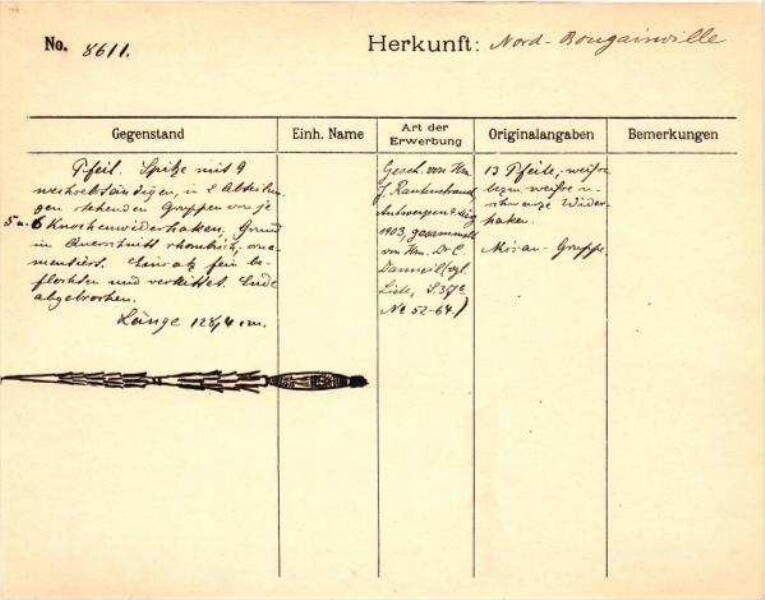 No. 8611.
Herkunft: Nord-Bougainville
Gegenstand
Einh. Name
Art der Erwerbung
Originalangaben
Bemerkungen
Pfeil. Spitze mit 9
wechselständigen, in 2 Abteilun-
gen stehenden Gruppen von je
5 u. 6 Knochenwiderhaken, Grund
im Querschnitt rhombisch, orna-
mentiert. Einsatz fein be-
flochten und verkittet. Ende
abgebrochen.
Länge 128,4 cm.
Gesch. von Hrn.
J. Rautenstrauch,
Antwerpen
1903, gesammelt
von Hrn. Dr. C.
Danneil (vgl.
Liste, S.
No 52-64.)
13 Pfeile, weisse
bezw. weisse u.
schwarze Wider-
haken.
Gruppe.